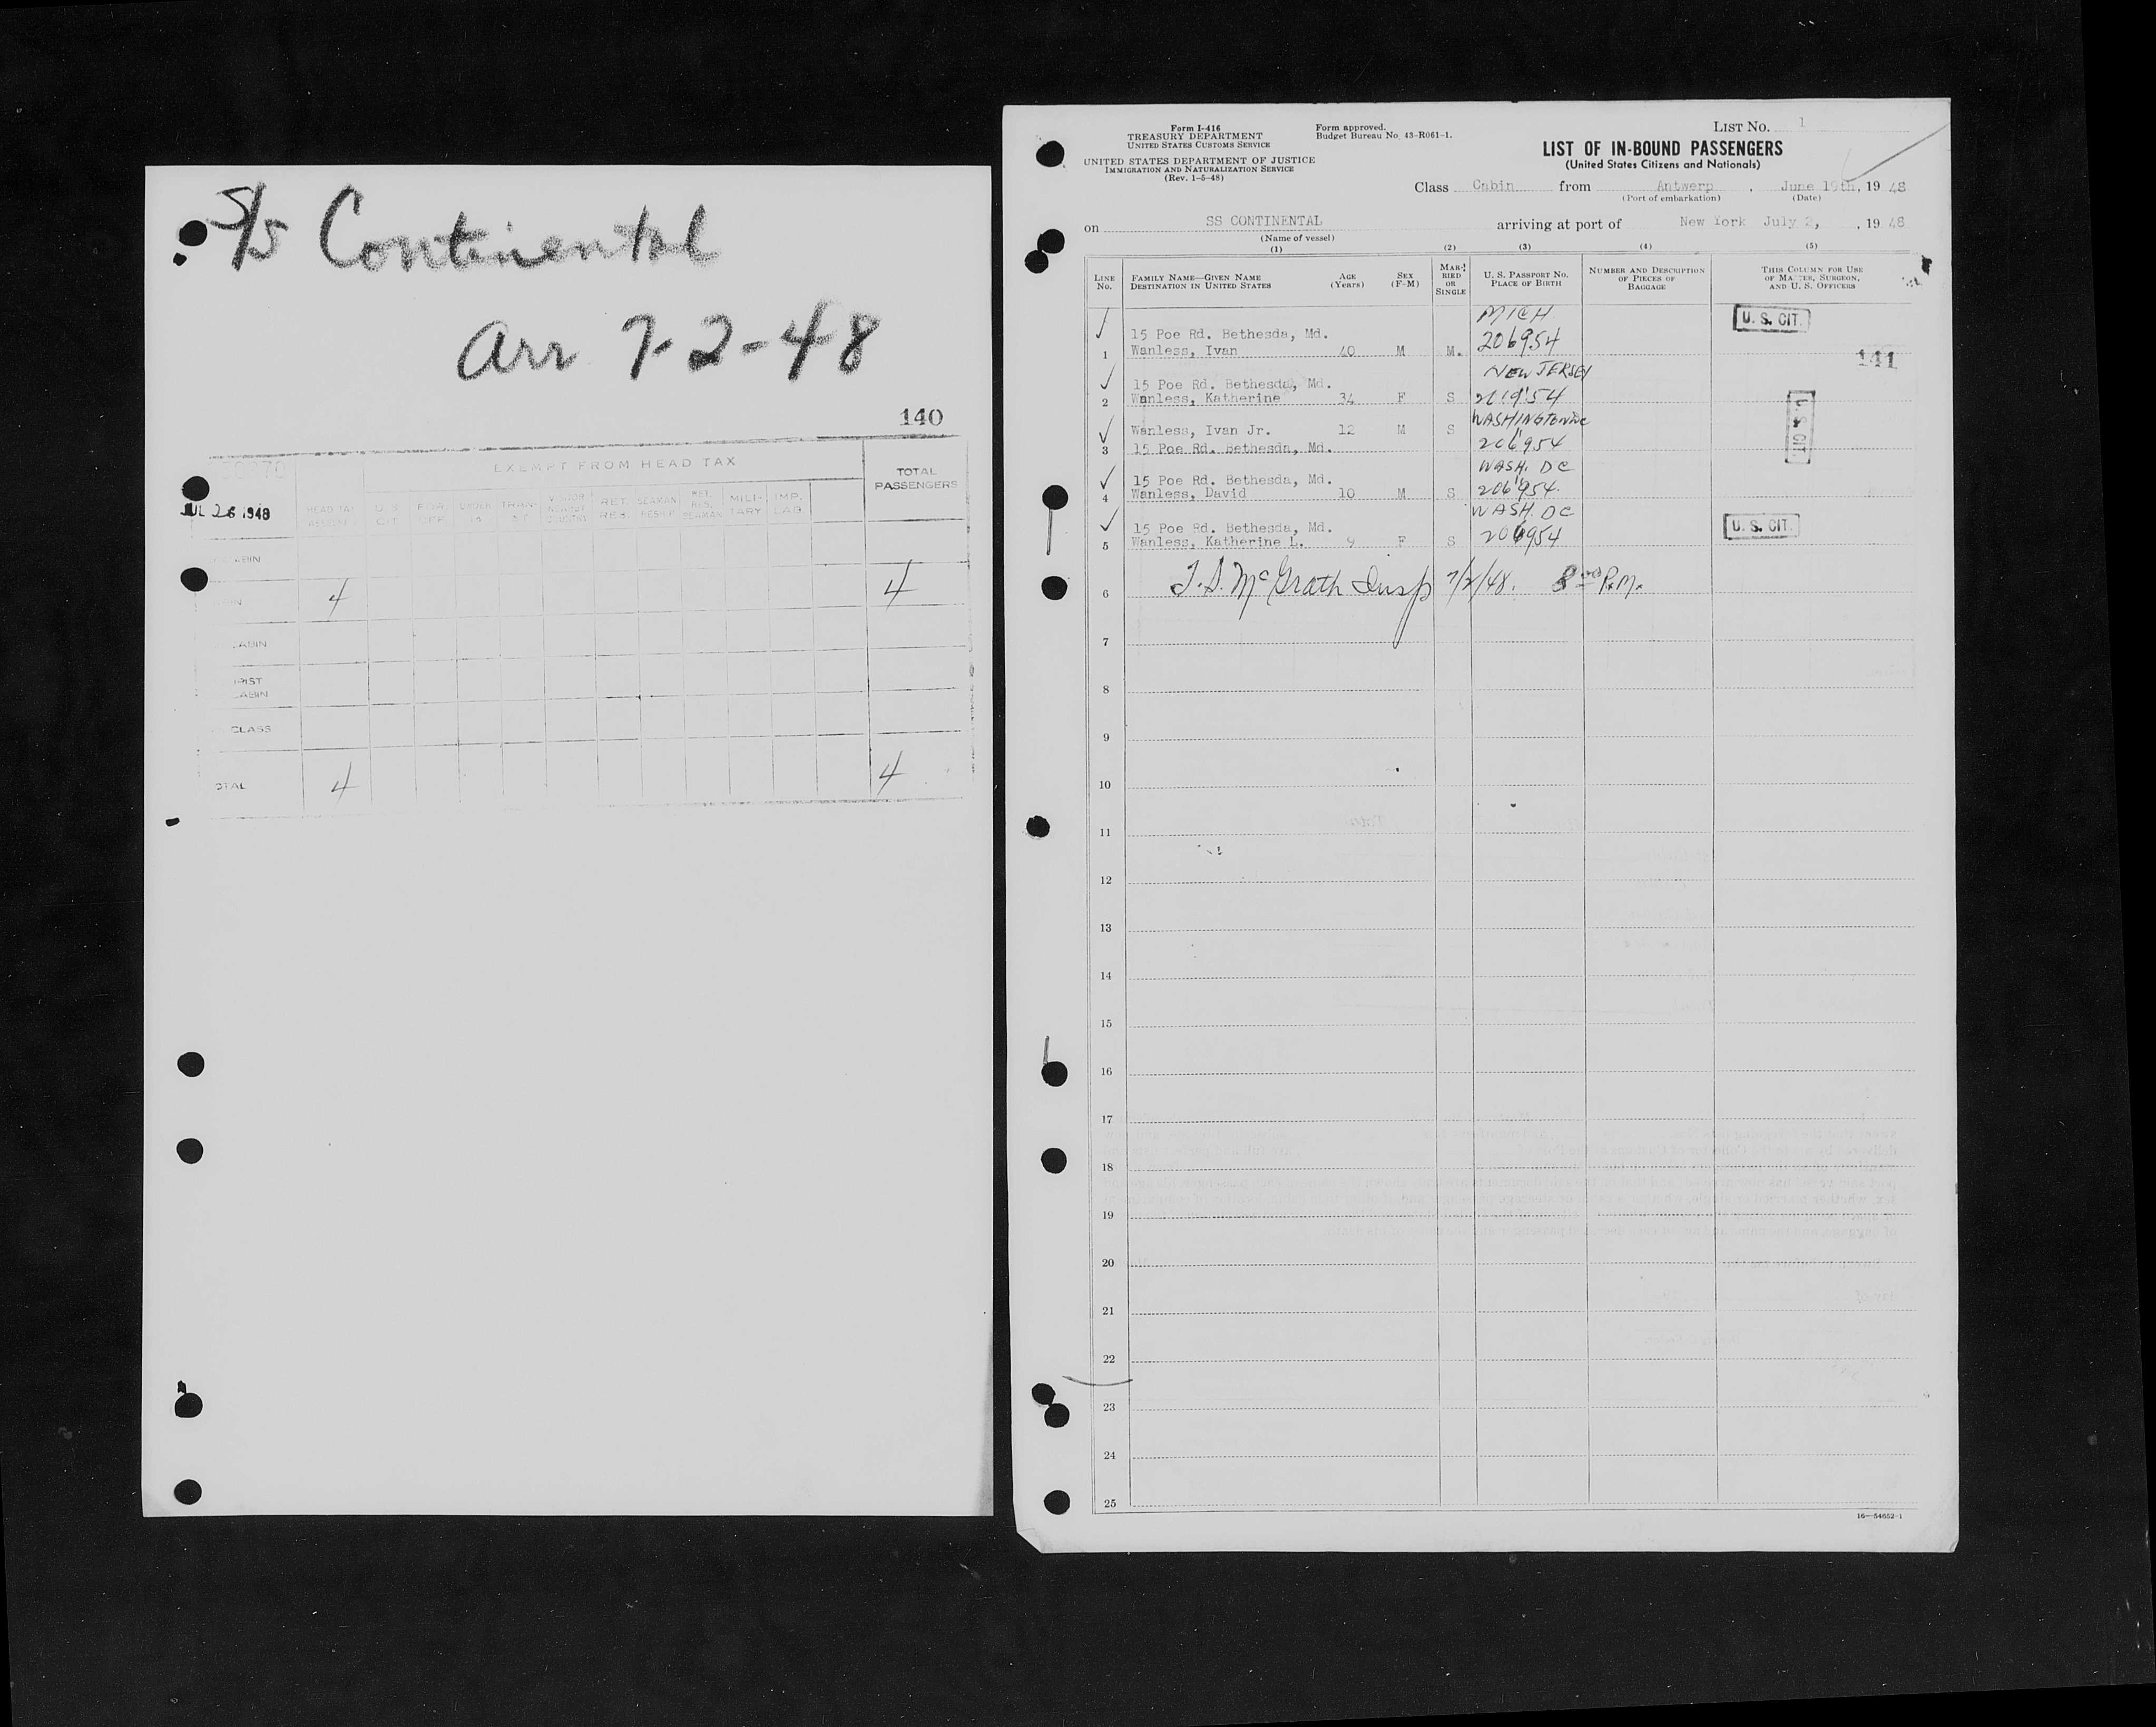 S/S Continental
Arr 7-2-48
140
EXEMPT FROM HEAD TAX
TOTAL PASSENGERS
JUL 26 1948
HEAD TAX
U.S. CIT
FOR. OFF
UNDER 16
TRAN-
RET. RES.
SEAMAN
RET. RES. SEAMAN
MILI- TARY
IMP. LAB
ABIN
4 4
ABIN
RIST
ABIN
CLASS
OTAL 4 4
Form I-416
TREASURY DEPARTMENT
UNITED STATES CUSTOMS SERVICE
UNITED STATES DEPARTMENT OF JUSTICE
IMMIGRATION AND NATURALIZATION SERVICE
(Rev. 1-5-48)
Form approved.
Budget Bureau No. 43-R061-1.
LIST No. 1
LIST OF IN-BOUND PASSENGERS
(United States Citizens and Nationals)
Class Cabin from Antwerp , June 19th, 19 48
(Port of embarkation) (Date)
on SS CONTINENTAL arriving at port of New York July 2, , 19 48
(Name of vessel)
(1) (2) (3) (4) (5)
LINE No.
FAMILY NAME—GIVEN NAME
DESTINATION IN UNITED STATES
AGE (Years)
SEX (F-M)
MARRIED OR SINGLE
U. S. PASSPORT NO.
PLACE OF BIRTH
NUMBER AND DESCRIPTION OF PIECES OF BAGGAGE
THIS COLUMN FOR USE OF MASTER, SURGEON, AND U. S. OFFICERS
MICH
U. S. CIT.
15 Poe Rd. Bethesda, Md.
1 Wanless, Ivan 40 M M. 206954
141
NEW JERSEY
15 Poe Rd. Bethesda, Md.
2 Wanless, Katherine 34 F S
U. S. CIT.
Wanless, Ivan Jr. 12 M S
3 15 Poe Rd. Bethesda, Md. 206954
WASH. DC
15 Poe Rd. Bethesda, Md.
4 Wanless, David 10 M S 206954
WASH. DC
15 Poe Rd. Bethesda, Md.
U. S. CIT.
5 Wanless, Katherine L. 9 F S 206954
6 T.S. McGrath Insp 7/2/48. 8 00 P.M.
7
8
9
10
11
12
13
14
15
16
17
18
19
20
21
22
23
24
25
16—54652-1